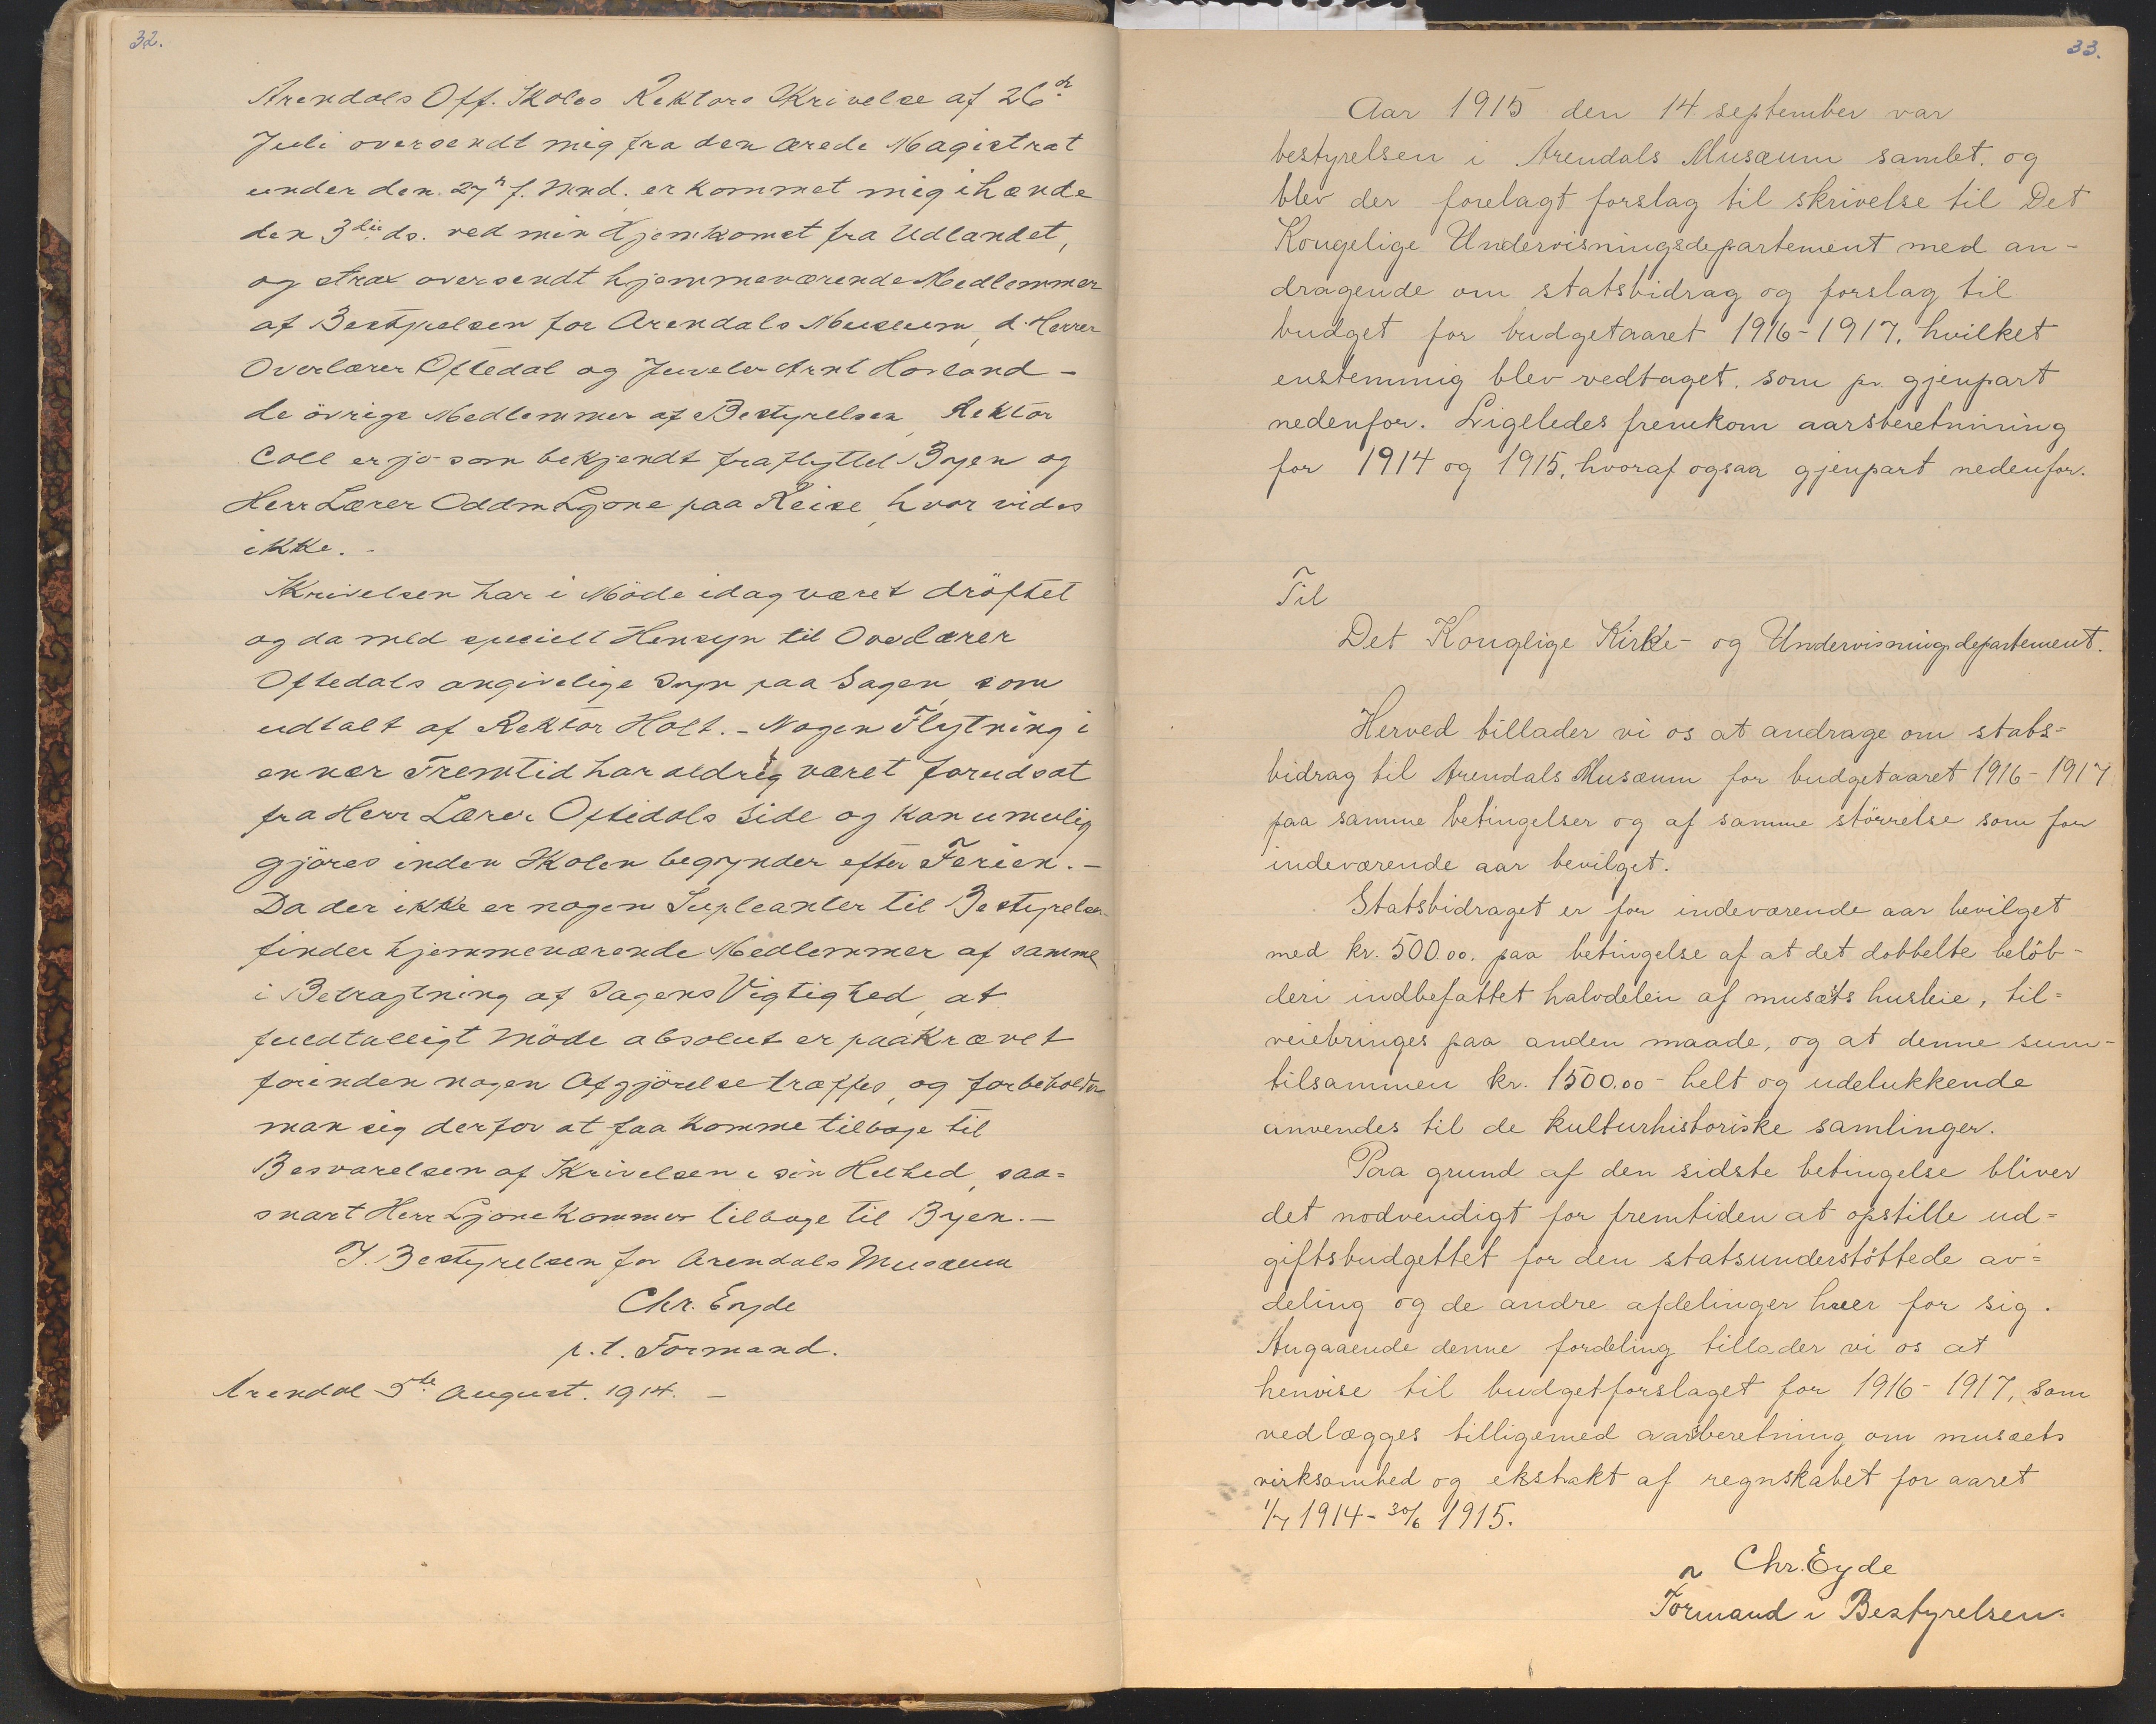 32.
Arendals Off. Skoles Rektors Skrivelse af 26de
Juli oversendt mig fra den ærede Magistrat
under den 27n f. Mnd. er kommet mig ihænde
den 3die ds. ved min Hjemkomst fra Udlandet,
og strax oversendt hjemmeværende Medlemmer
af Bestyrelsen for Arendals Museum, d'Herrer
Overlærer Oftedal og Juveler Arnt Hovland –
de övrige Medlemmer af Bestyrelsen, Rektor
Coll er jo som bekjendt fraflyttet Byen og
Herr Lærer Oddm Ljone paa Reise, hvor vides
ikke. –
Skrivelsen har i Möde idag været dröftet
og da med specielt Hensyn til Overlærer
Oftedals angivelige Syn paa Sagen, som
udtalt af Rektor Holt. – Nogen Flytning i
en nær Fremtid har aldrig været forudsat
fra Herr Lærer Oftedals Side og kan umulig
gjöres inden Skolen begynder efter Ferien. –
Da der ikke er nogen Supleanter til Bestyrelsen
finder hjemmeværende Medlemmer af samme
i Betragtning af Sagens Vigtighed, at
fuldtalligt Möde absolut er paakrævet
forinden nogen Afgjörelse træffes, og forbeholder
man sig derfor at faa komme tilbage til
Besvarelsen af Skrivelsen i sin Helhed, saa=
snart Herr Ljone kommer tilbage til Byen. –
I. Bestyrelsen for Arendals Musæum
Chr. Eyde
p.t. Formand.
Arendal 5te August. 1914. –
33.
Aar 1915 den 14 september var
bestyrelsen i Arendals Musæum samlet. og
blev der forelagt forslag til skrivelse til Det
Kongelige Undervisningsdepartement med an-
dragende om statsbidrag og forslag til
budget for budgetaaret 1916-1917, hvilket
enstemmig blev vedtaget. som pr. gjenpart
nedenfor. Ligeledes fremkom aarsberetnining
for 1914 og 1915, hvoraf ogsaa gjenpart nedenfor.
Til
Det Konglige Kirke- og Undervisningsdepartement.
Herved tillader vi os at andrage om stats=
bidrag til Arendals Musæum for budgetaaret 1916-1917
paa samme betingelser og af samme större​lse som for
indeværende aar bevilget.
Statsbidraget er for indeværende aar bevilget
med kr. 500.00. paa betingelse af at det dobbelte belöb-
deri indbefattet halvdelen af musæts husleie, til=
veiebringes paa anden maade, og at denne sum-
tilsammen kr. 1500.00 - helt og udelukkende
anvendes til de kulturhistoriske samlinger.
Paa grund af den sidste betingelse bliver
det nodvendigt for fremtiden at opstille ud=
giftsbudgettet for den statsunderstöttede av=
deling og de andre afdelinger hver for sig.
Angaaende denne fordeling tillader vi os at
henvise til budgetforslaget for 1916-1917, som
vedlægges tilligemed aarsberetning om musæets
virksomhed og ekstrakt af regnskabet for aaret
1/7 1914 - 30/6 1915.
Chr. Eyde
Formand i Bestyrelsen.